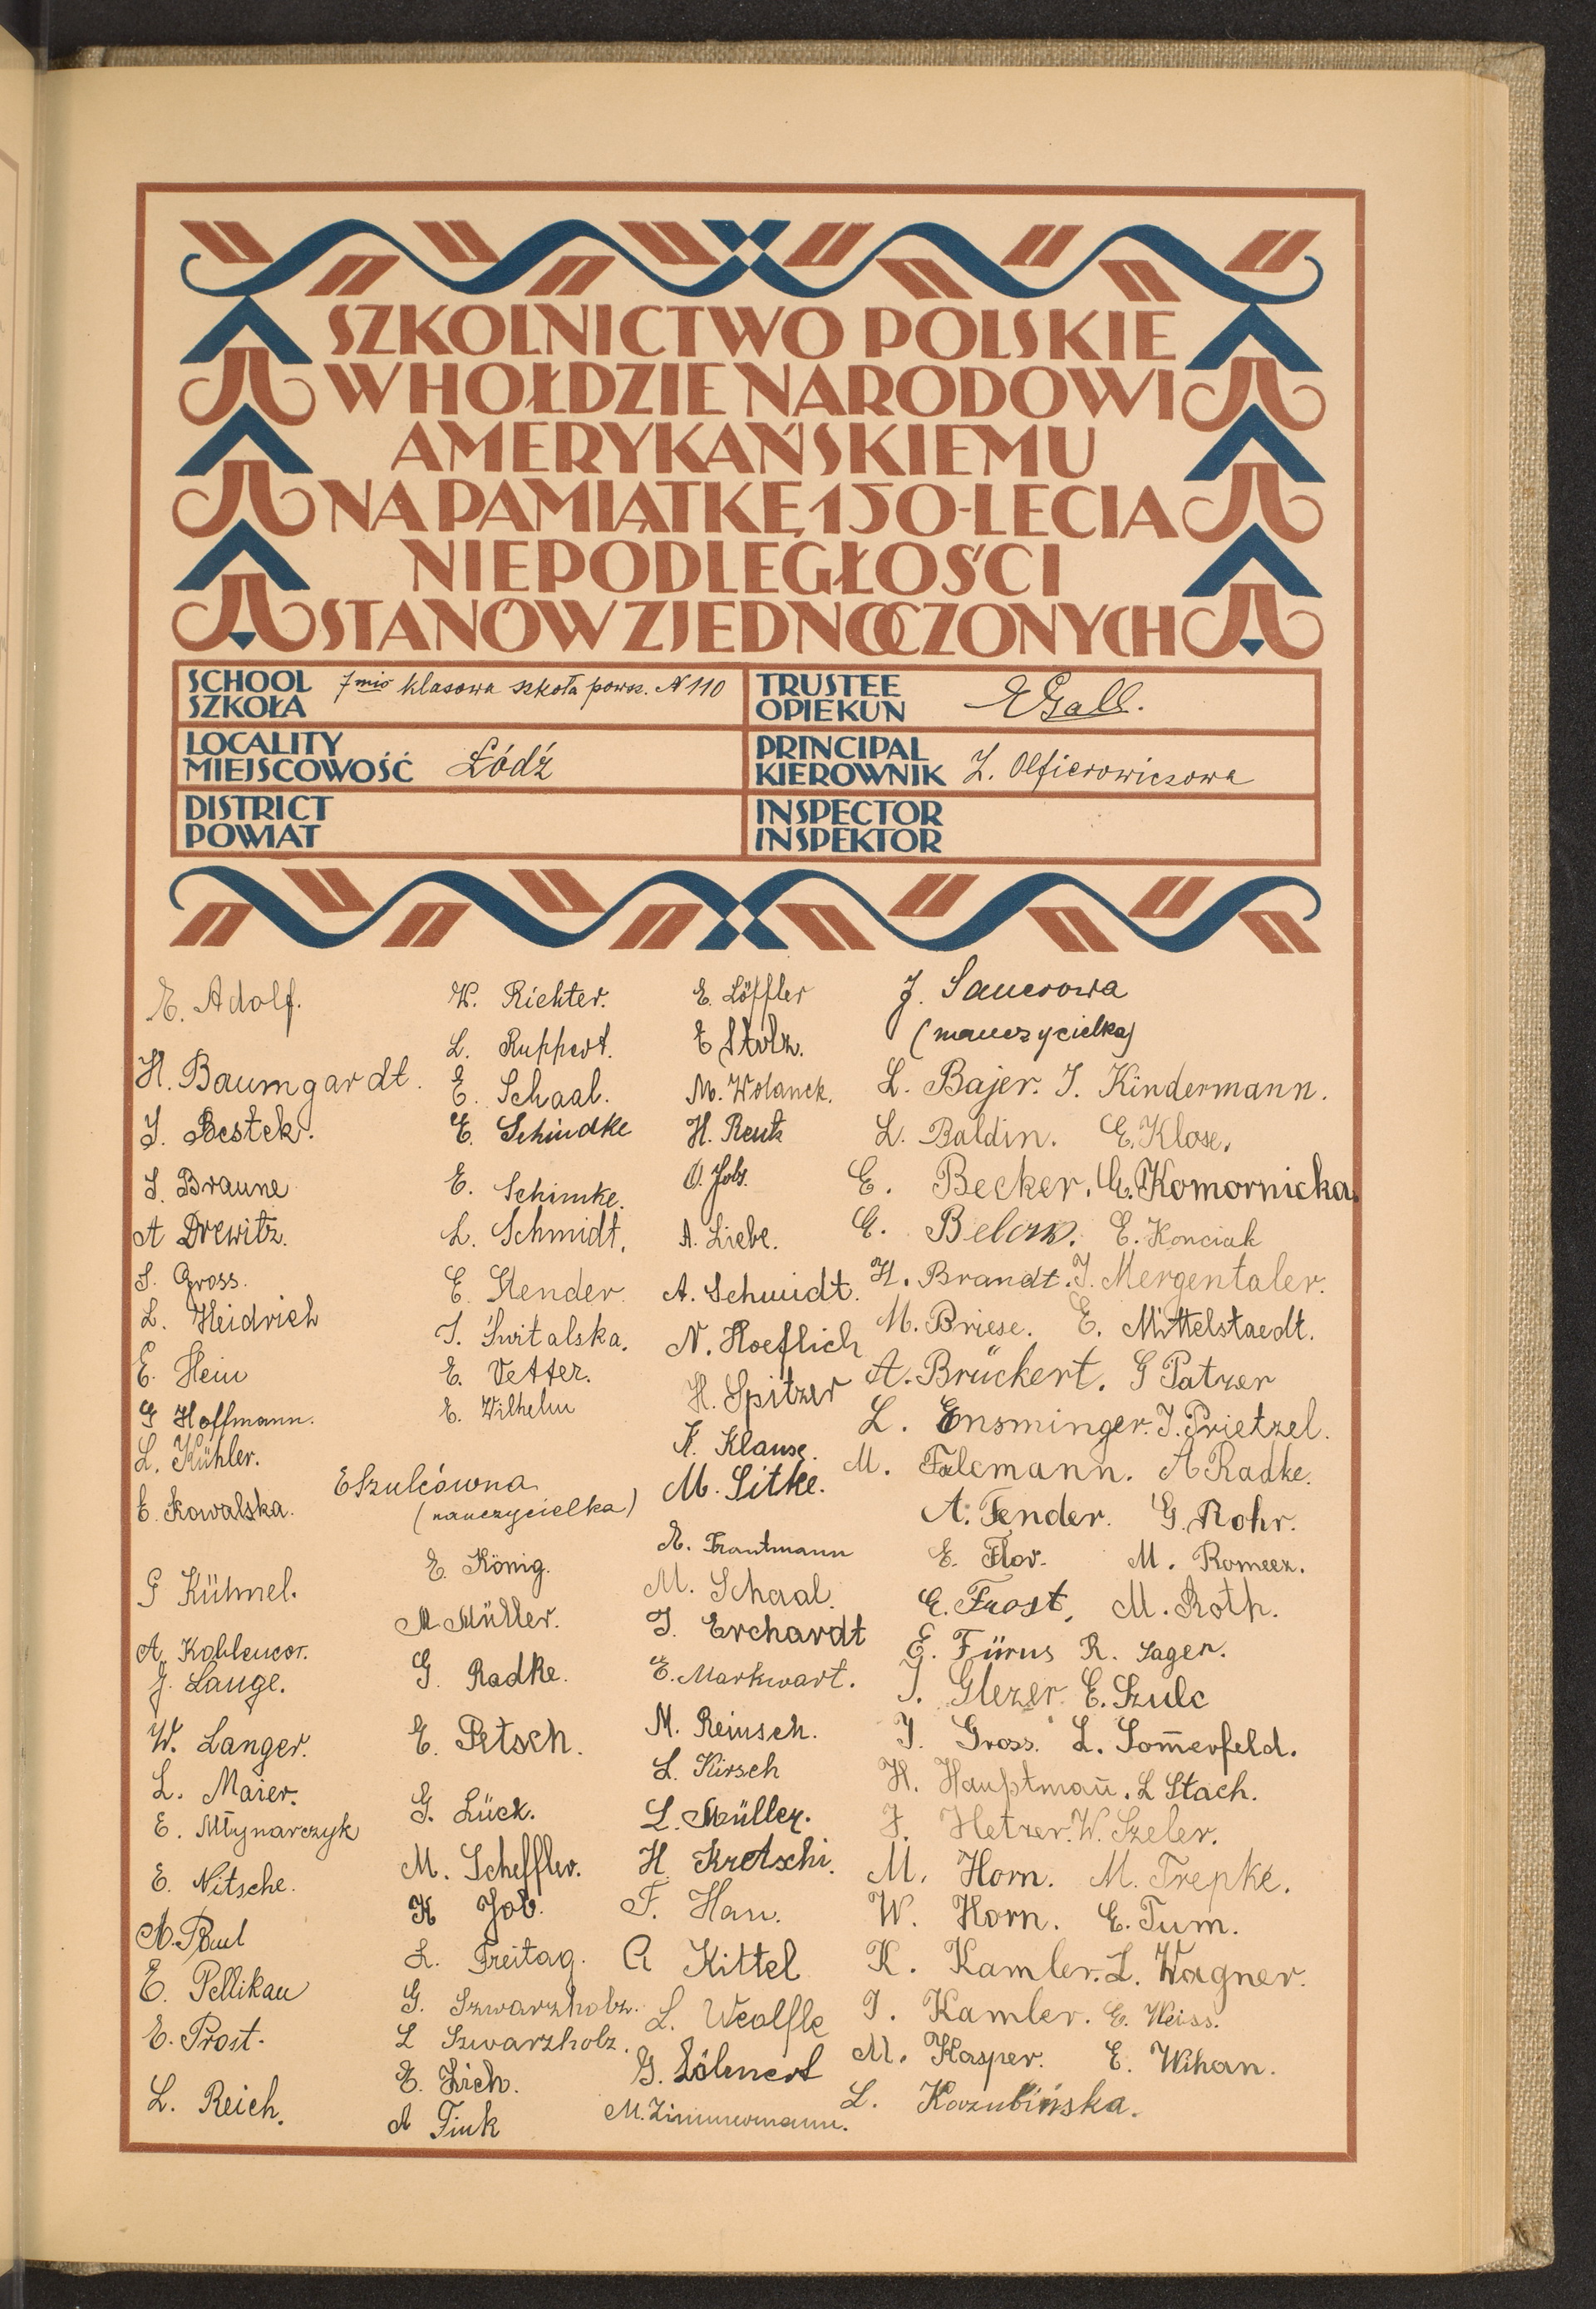 SZKOLNICTWO POLSKIE
W HOŁDZIE NARODOWI
AMERYKAŃSKIEMU
NA PAMIĄTKĘ 150-LECIA
NIEPODLEGŁOŚCI
STANÓW ZJEDNOCZONYCH
SCHOOL
SZKOŁA
7mio klasowa szkoła powsz. N 110
TRUSTEE
OPIEKUN
EGall.
LOCALITY
MIEJSCOWOŚĆ
Łódź
PRINCIPAL
KIEROWNIK
Z. Olfierowiczowa
DISTRICT
POWIAT
INSPECTOR
INSPEKTOR
E. Adolf.
H. Baumgardt.
I. Bestek.
I. Braune
A Drewitz.
I. Gross.
L. Heidrich
E. Hein
G Hoffmann.
L. Kühler.
E. Kowalska.
G Kühnel.
A.
J. Lange.
W. Langer.
L. Maier.
E. Młynarczyk
E. Nitsche.
A. Paul
E. Pellikan
E. Prost.
L. Reich.
W. Richter.
L. Ruppert.
E. Schaal.
E. Schindke
E. Schimke.
L. Schmidt.
E. Stender.
I. Świtalska.
E. Vetter.
E. Wilhelm
ESzulcówna
(nauczycielka)
E. König.
M Müller.
G. Radke.
E. Petsch.
G. Lück.
M. Scheffler.
K Job.
L. Freitag.
G. Szwarzholz.
L Szwarzholz.
E. Zich.
A Fink
E. Löffler
E Stolz.
M. Wolanek.
H. Rentz
O. Jobs.
A. Liebe.
A. Schmidt.
N. Hoeflich
H. Spitzer
K. Klause.
M. Litke.
E. Trautmann
M. Schaal.
I. Erchardt
E. Markwart.
M. Reinsch.
L. Kirsch
L. Müller.
H Kretschi.
F. Hau.
A Kittel
L. Weolfle
G. Löhnert
M. Zimmermann.
J. Sauerowa
(nauczycielka)
L. Bajer. I. Kindermann.
L. Baldin. E. Klose.
E. Becker. G. Komornicka.
G. Below. E. Konciak
H. Brandt. I. Mergentaler.
M. Briese. E. Mittelstaedt.
A. Brückert. G Patzer
L. Ensminger. I. Prietzel.
M. Falcmann. A Radke.
A. Fender. G. Rohr.
E. Flor. M. Romeez.
E. Frost. M. Roth.
E. Fürus R. Sager.
I. Glezer. E. Szulc
I. Gross. L. Som̄erfeld.
H. Hauptman̄. L Stach.
J. Hetzer. W. Szeler.
M. Horn. M. Trepke.
W. Horn. E. Tum.
K. Kamler. L. Wagner.
I. Kamler. E. Weiss.
M. Kasper. E. Wihan.
L. Kozubińska.